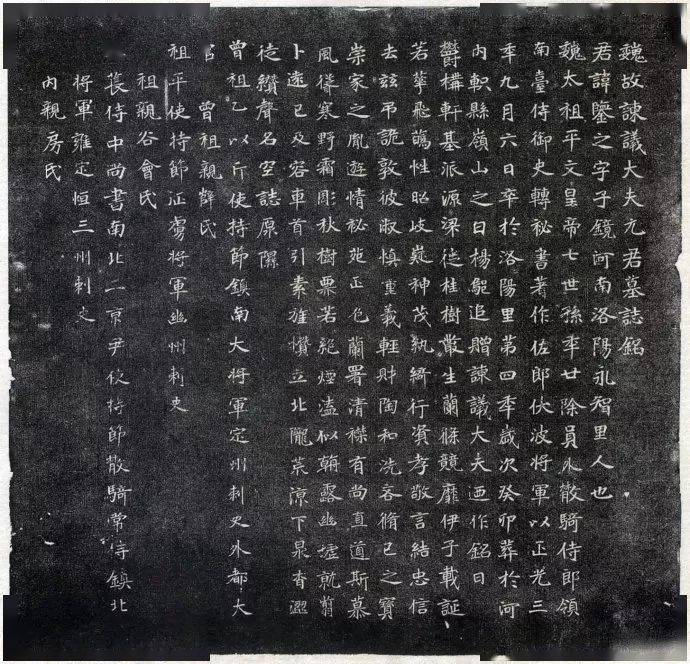 魏故諫議大夫元君墓誌銘
君諱鑒之字子鏡河南洛陽永智里人也
魏太祖平文皇帝七世孫年廿除員外散騎侍郎領
南臺侍御史轉祕書著作佐郎伏波將軍以正光三
年九月六日卒於洛陽里第四年歲次癸卯葬於河
內軹縣嶺山之日楊 追贈諫議大夫迺作銘曰
鬱構軒基派源深從桂樹叢生蘭條競靡伊子載誕
若華飛 性昭岐嶷神茂紈綺行資孝敬言結忠信
去玆吊詭敦彼淑慎重義輕財陶和洗吝脩己之寶
崇家之胤遊情祕苑正色蘭署清襟有尚直道斯慕
風得寒野霜彫秋樹票若絕煙溘似朝露幽墟就窮
卜遠已及容車首引素旌懭立北隴荒涼下泉杳澀
徒纘聲名空誌原隰
曾祖乙以斤使持節鎮南大將軍定州刺史外都大
官 曾祖親薛氏
祖平使持節征虜將軍幽州刺史
祖親谷會氏
萇侍中尚書南北二京尹使持節散騎常侍鎮北
將軍雍定恒三州刺史
內親房氏